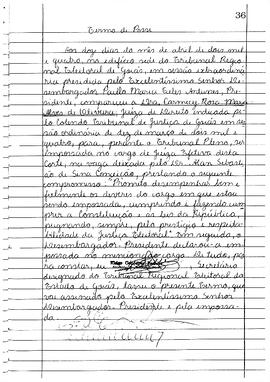 36
Termo de Posse
Aos doze dias do mês de abril de dois mil
e quatro, no edifício sede do Tribunal Regio
nal Eleitoral de Goiás, em sessão extraordiná
ria presidida pelo Excelentíssimo Senhor De
sembargador Paulo Maria Teles Antunes, Pre
sidente, compareceu a Dra. Carmecy Rosa Maria
Alves de Oliveira, Juíza de Direito indicada pe
lo Colendo Tribunal de Justiça de Goiás em ses
são ordinária de dez de março de dois mil e
quatro, para, perante o Tribunal Pleno, ser
empossada no cargo de Juíza Efetiva desta
Corte, na vaga deixada pelo Dr. Alan Sebas
tião de Sena Conceição, prestando o seguinte
compromisso: "Prometo desempenhar bem e
fielmente os deveres do cargo em que estou
sendo empossada, cumprindo e fazendo cum
prir a Constituição e as leis da República,
pugnando, sempre, pelo prestígio e respeita
bilidade da Justiça Eleitoral". Em seguida, o
Desembargador Presidente declarou-a em
possada no mencionado cargo. De tudo, pa
ra constar, eu, Secretária
designada do Tribunal Regional Eleitoral do
Estado de Goiás, lavrei o presente Termo, que
vai assinado pelo Excelentíssimo Senhor
Desembargador Presidente e pela empossa
da.